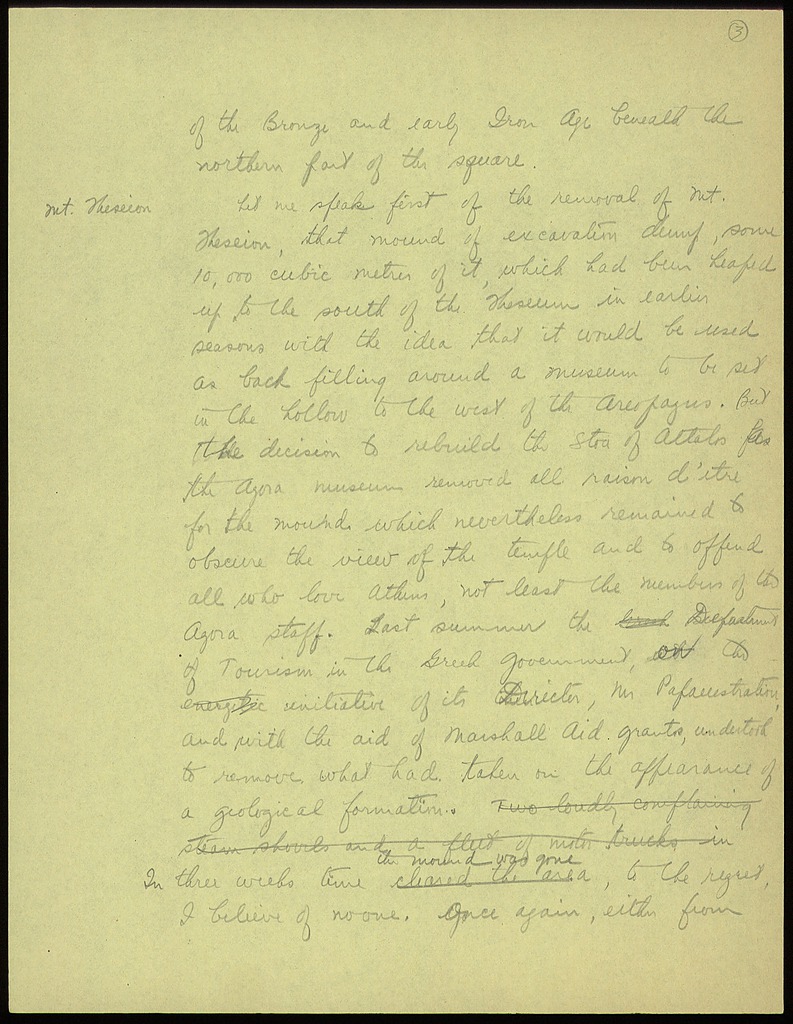 3
of the Bronze and early Iron Age beneath the
northern part of the square.
Mt. Theseion
Let me speak first of the removal of Mt.
Theseion, that mound of excavation dump, some
10,000 cubic metres of it, which had been heaped
up to the south of the Theseum in earlier
seasons with the idea that it would be used
as back filling around a museum to be set
in the hollow to the west of the Areopagus. But
the decision to rebuild the Stoa of Attalos as
the Agora museum removed all raison d'etre
for the mound which nevertheless remained to
obscure the view of the temple and to offend
all who love Athens, not least the members of the
Agora staff. Last summer the Greek Department
of Tourism in the Greek government, on the
energetic initiative of its Director, Mr Papaefstratiou,
and with the aid of Marshall Aid grants, undertook
to remove what had taken on the appearance of
a geological formation. Two loudly complaining
steam shovels and a fleet of motor trucks in
the mound was gone
In three weeks time cleared the area, to the regret,
I believe of no one. Once again, either from